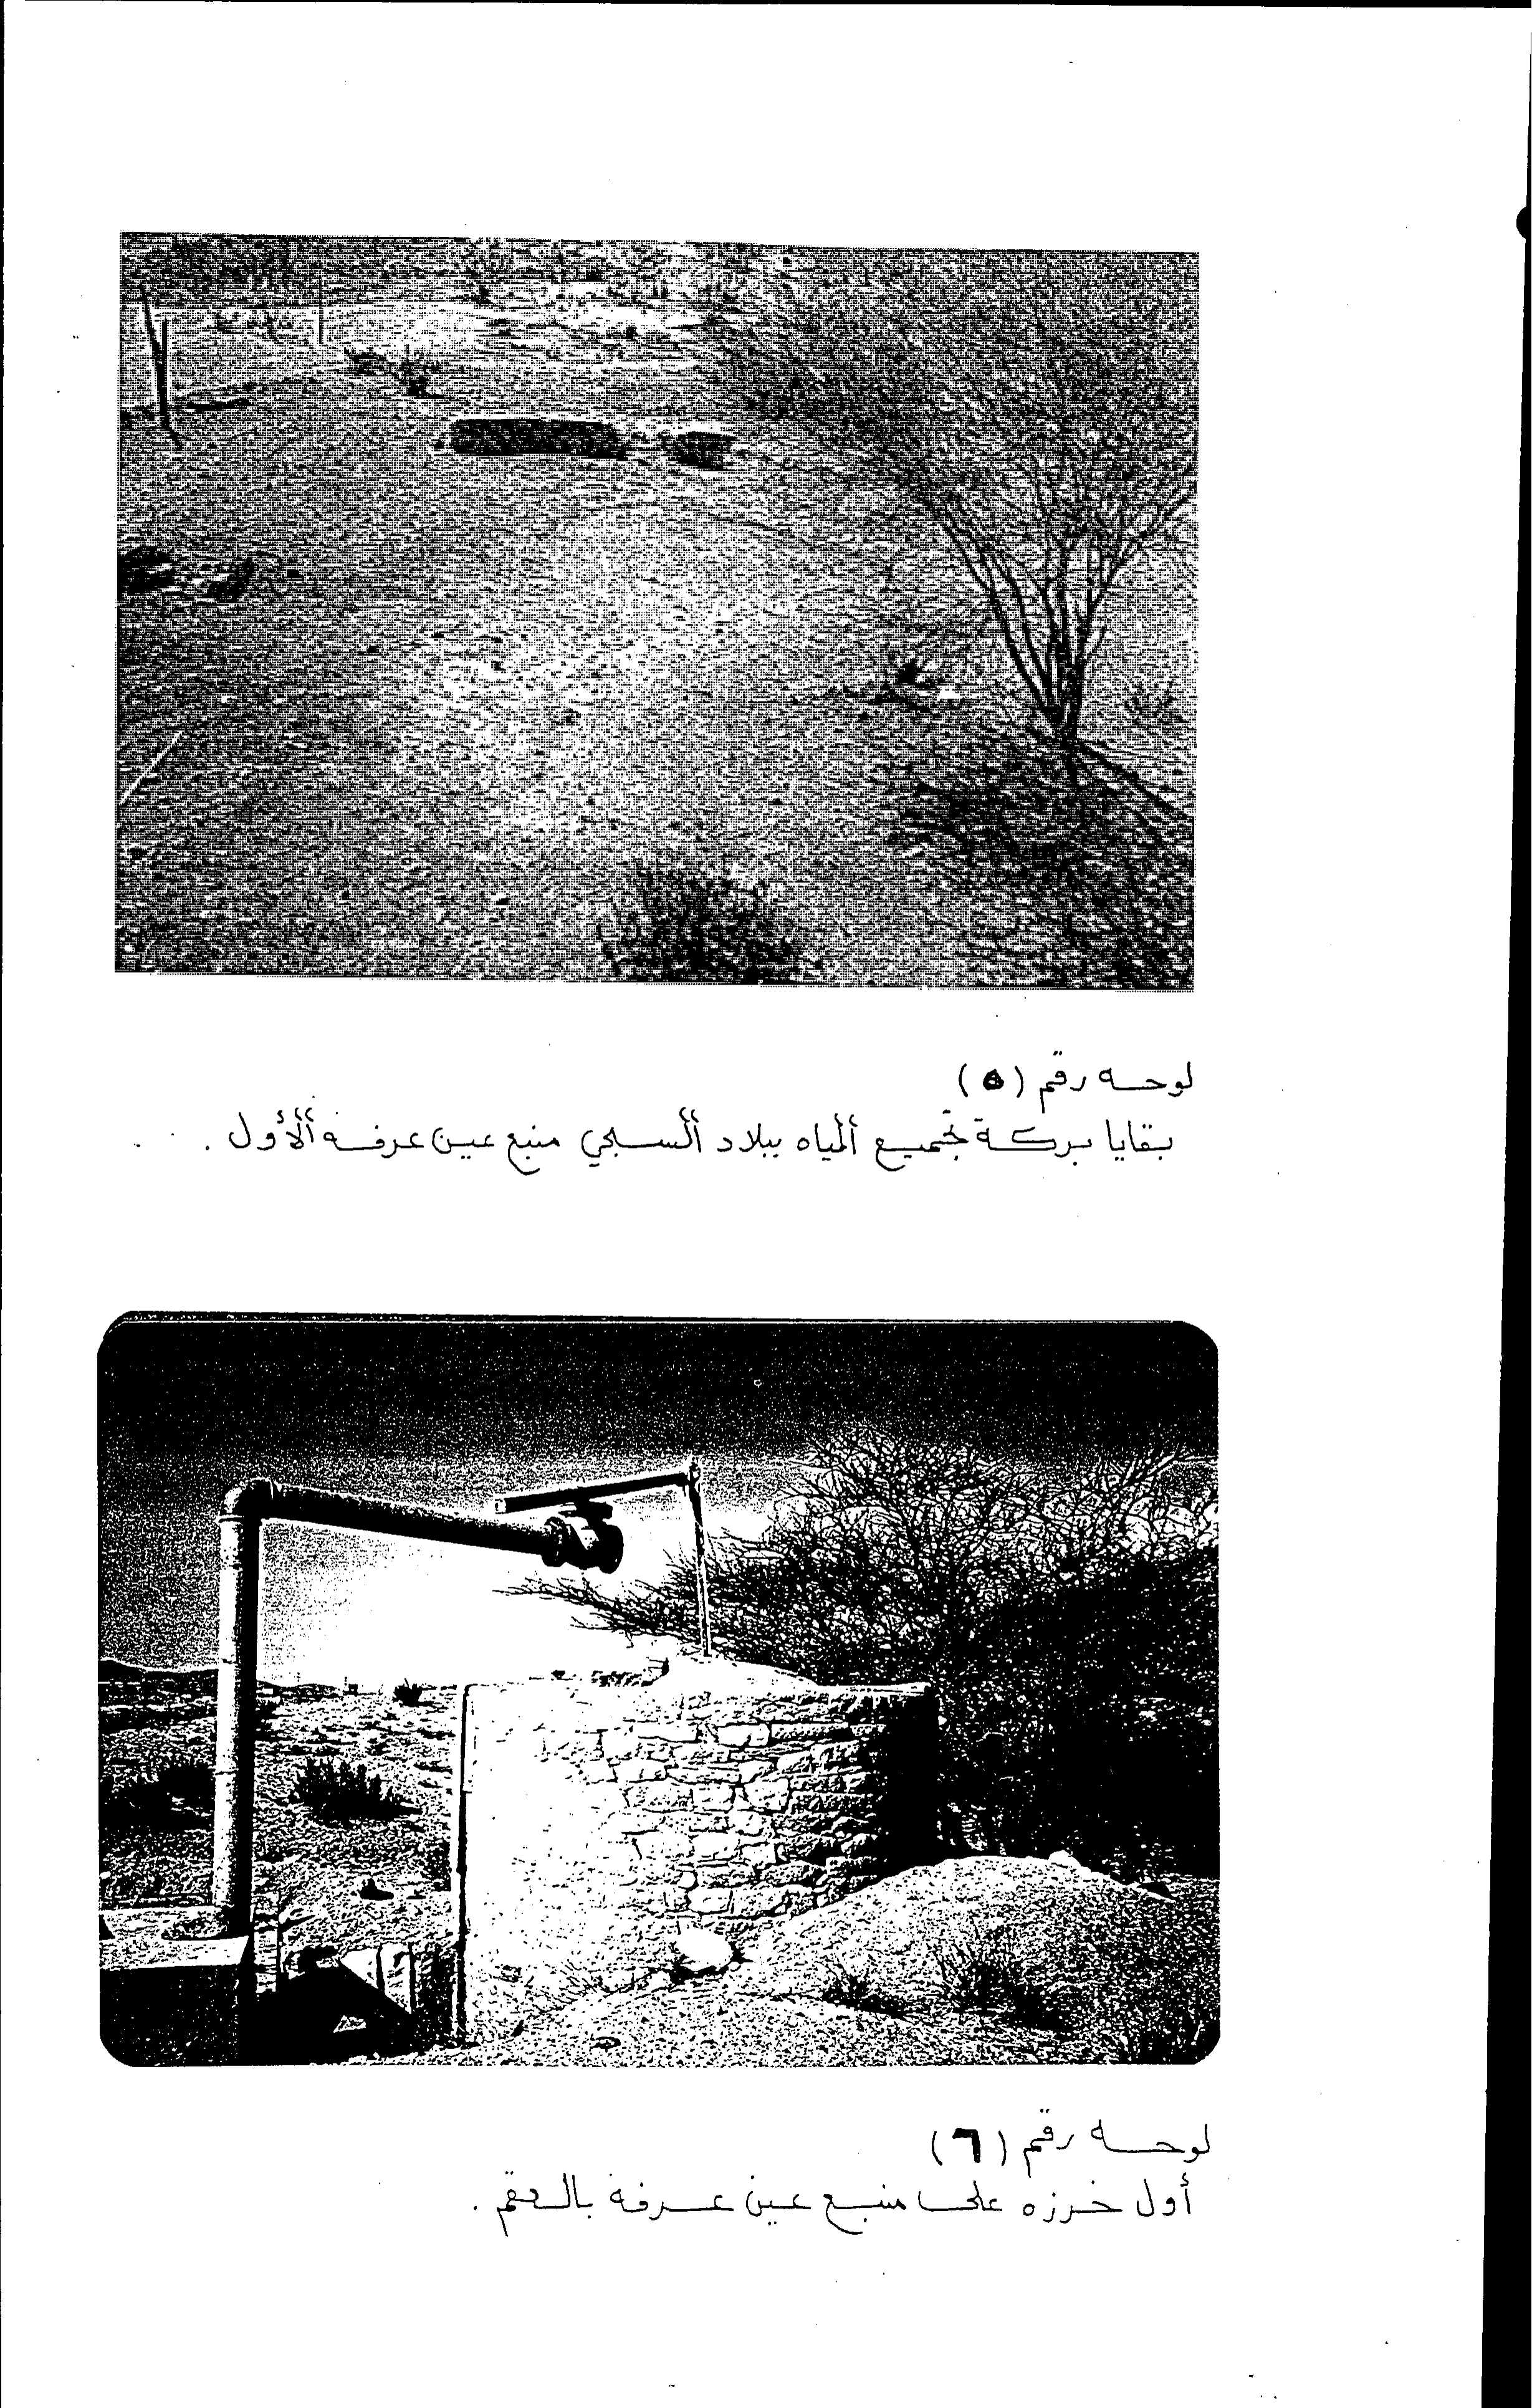 لوحه رقم (٥)
بقايا بركة تجميع المياه ببلاد السبحي منبع عين عرفه الأول .
لوحه رقم (٦)
أول خرزه على منبع عين عرفه بالدقم .